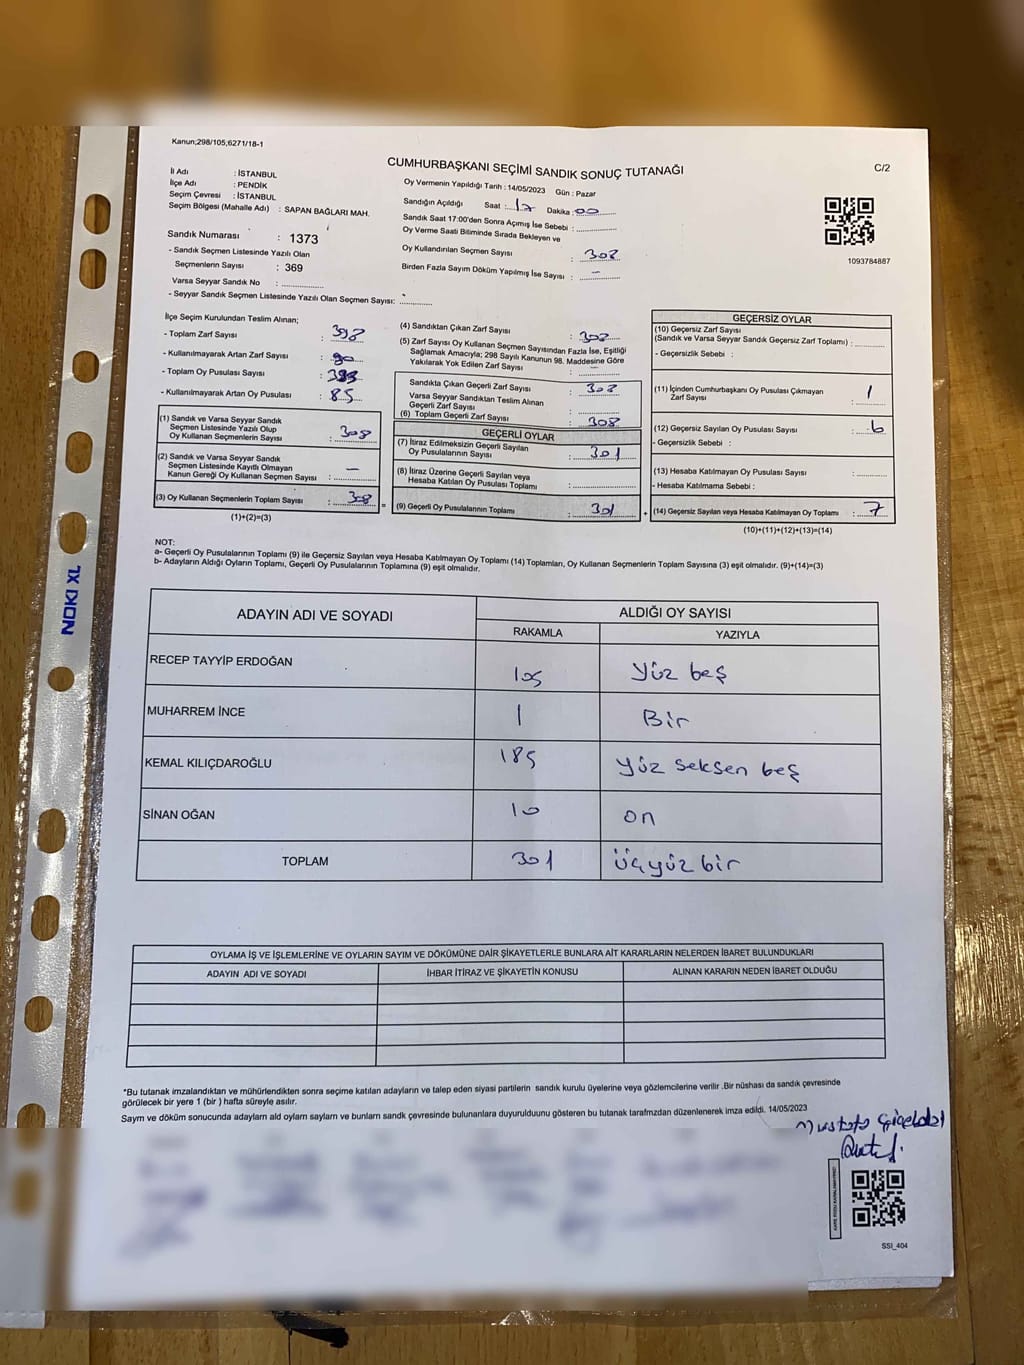 Kanun;298/105;6271/18-1
CUMHURBAŞKANI SEÇİMİ SANDIK SONUÇ TUTANAĞI
C/2
İl Adı : İSTANBUL
İlçe Adı : PENDİK
Seçim Çevresi : İSTANBUL
Seçim Bölgesi (Mahalle Adı) : SAPAN BAĞLARI MAH.
Sandık Numarası : 1373
- Sandık Seçmen Listesinde Yazılı Olan
Seçmenlerin Sayısı : 369
Varsa Seyyar Sandık No :
- Seyyar Sandık Seçmen Listesinde Yazılı Olan Seçmen Sayısı:
Oy Vermenin Yapıldığı Tarih : 14/05/2023 Gün : Pazar
Sandığın Açıldığı Saat : 17 Dakika : 00
Sandık Saat 17:00'den Sonra Açımış İse Sebebi :
Oy Verme Saati Bitiminde Sırada Bekleyen ve
Oy Kullandırılan Seçmen Sayısı : 308
Birden Fazla Sayım Döküm Yapılmış İse Sayısı : -
1093784887
İlçe Seçim Kurulundan Teslim Alınan;
- Toplam Zarf Sayısı : 398
- Kullanılmayarak Artan Zarf Sayısı : 90
- Toplam Oy Pusulası Sayısı : 393
- Kullanılmayarak Artan Oy Pusulası : 85
(1) Sandık ve Varsa Seyyar Sandık
Seçmen Listesinde Yazılı Olup
Oy Kullanan Seçmenlerin Sayısı : 308
(2) Sandık ve Varsa Seyyar Sandık
Seçmen Listesinde Kayıtlı Olmayan
Kanun Gereği Oy Kullanan Seçmen Sayısı : -
(3) Oy Kullanan Seçmenlerin Toplam Sayısı : 308
(1)+(2)=(3)
(4) Sandıktan Çıkan Zarf Sayısı : 308
(5) Zarf Sayısı Oy Kullanan Seçmen Sayısından Fazla İse, Eşitliği
Sağlamak Amacıyla; 298 Sayılı Kanunun 98. Maddesine Göre
Yakılarak Yok Edilen Zarf Sayısı :
Sandıkta Çıkan Geçerli Zarf Sayısı : 308
Varsa Seyyar Sandıktan Teslim Alınan
Geçerli Zarf Sayısı :
(6) Toplam Geçerli Zarf Sayısı : 308
GEÇERLİ OYLAR
(7) İtiraz Edilmeksizin Geçerli Sayılan
Oy Pusulalarının Sayısı : 301
(8) İtiraz Üzerine Geçerli Sayılan veya
Hesaba Katılan Oy Pusulası Toplamı :
= (9) Geçerli Oy Pusulalarının Toplamı : 301
GEÇERSİZ OYLAR
(10) Geçersiz Zarf Sayısı
(Sandık ve Varsa Seyyar Sandık Geçersiz Zarf Toplamı) :
- Geçersizlik Sebebi :
(11) İçinden Cumhurbaşkanı Oy Pusulası Çıkmayan
Zarf Sayısı : 1
(12) Geçersiz Sayılan Oy Pusulası Sayısı : 6
- Geçersizlik Sebebi :
(13) Hesaba Katılmayan Oy Pusulası Sayısı :
- Hesaba Katılmama Sebebi :
+ (14) Geçersiz Sayılan veya Hesaba Katılmayan Oy Toplamı : 7
(10)+(11)+(12)+(13)=(14)
NOT:
a- Geçerli Oy Pusulalarının Toplamı (9) ile Geçersiz Sayılan veya Hesaba Katılmayan Oy Toplamı (14) Toplamları, Oy Kullanan Seçmenlerin Toplam Sayısına (3) eşit olmalıdır. (9)+(14)=(3)
b- Adayların Aldığı Oyların Toplamı, Geçerli Oy Pusulalarının Toplamına (9) eşit olmalıdır.
NOKI XL
ADAYIN ADI VE SOYADI
ALDIĞI OY SAYISI
RAKAMLA YAZIYLA
RECEP TAYYİP ERDOĞAN 105 Yüz beş
MUHARREM İNCE 1 Bir
KEMAL KILIÇDAROĞLU 185 yüz seksen beş
SİNAN OĞAN 10 on
TOPLAM 301 Üçyüz bir
OYLAMA İŞ VE İŞLEMLERİNE VE OYLARIN SAYIM VE DÖKÜMÜNE DAİR ŞİKAYETLERLE BUNLARA AİT KARARLARIN NELERDEN İBARET BULUNDUKLARI
ADAYIN ADI VE SOYADI İHBAR İTİRAZ VE ŞİKAYETİN KONUSU ALINAN KARARIN NEDEN İBARET OLDUĞU
*Bu tutanak imzalandıktan ve mühürlendikten sonra seçime katılan adayların ve talep eden siyasi partilerin sandık kurulu üyelerine veya gözlemcilerine verilir .Bir nüshası da sandık çevresinde
görülecek bir yere 1 (bir ) hafta süreyle asılır.
Sayım ve döküm sonucunda adayların ald oyların sayıları ve bunların sandık çevresinde bulunanlara duyurulduunu gösteren bu tutanak tarafmzdan düzenlenerek imza edildi. 14/05/2023
Mustafa
SSI_404